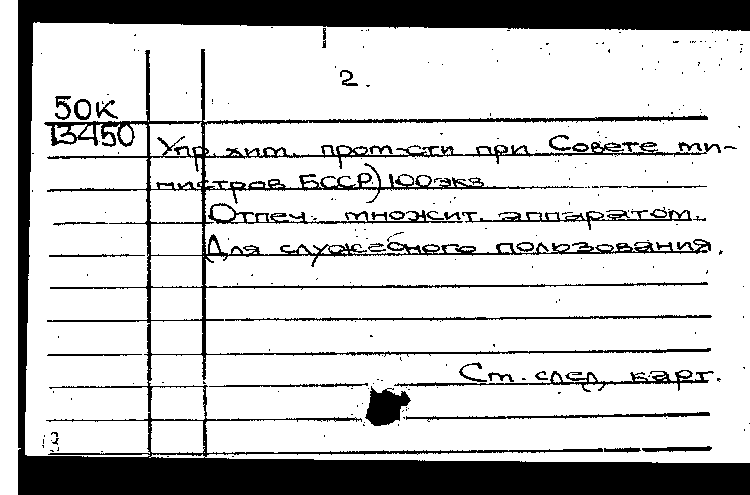 2.
50К
13450
Упр. хим. пром-сти при Совете ми-
нистров БССР) 100экз.
Отпеч. множит. аппаратом.
Для служебного пользования.
Ст. след. карт.